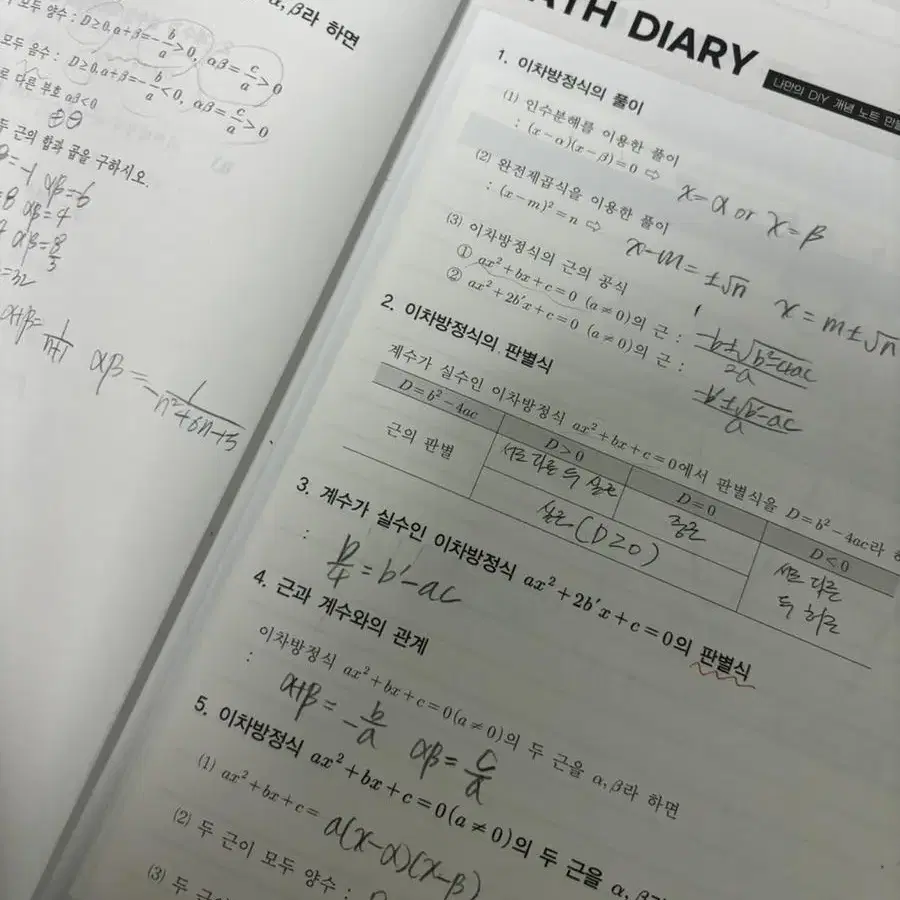 모두 양수 : D≥0, α+β=-b/a>0, αβ=c/a>0
모두 음수 : D≥0, α+β=-b/a<0, αβ=c/a>0
다른 부호 αβ<0
⊕⊖
두 근의 합과 곱을 구하시오.
αβ=6
αβ=4
αβ=8/3
α+β=1/(n+1) αβ=-1/(n²+6n+5)
α, β라 하면
MATH DIARY
나만의 DIY 개념 노트
1. 이차방정식의 풀이
(1) 인수분해를 이용한 풀이
: (x-α)(x-β)=0 ⇨ x=α or x=β
(2) 완전제곱식을 이용한 풀이
: (x-m)²=n ⇨ x-m=±√n x=m±√n
(3) 이차방정식의 근의 공식
① ax²+bx+c=0 (a≠0)의 근 : -b±√b²-4ac/2a
② ax²+2b'x+c=0 (a≠0)의 근 :
2. 이차방정식의 판별식
계수가 실수인 이차방정식 ax²+bx+c=0에서 판별식을 D=b²-4ac라
D=b²-4ac D>0 D=0 D<0
근의 판별 서로 다른 두 실근 중근 서로 다른 두 허근
실근 (D≥0)
3. 계수가 실수인 이차방정식 ax²+2b'x+c=0의 판별식
: D/4=b'-ac
4. 근과 계수와의 관계
이차방정식 ax²+bx+c=0(a≠0)의 두 근을 α, β라 하면
: α+β=-b/a αβ=c/a
5. 이차방정식 ax²+bx+c=0(a≠0)의 두 근을 α, β
(1) ax²+bx+c= a(x-α)(x-β)
(2) 두 근이 모두 양수 :
(3) 두